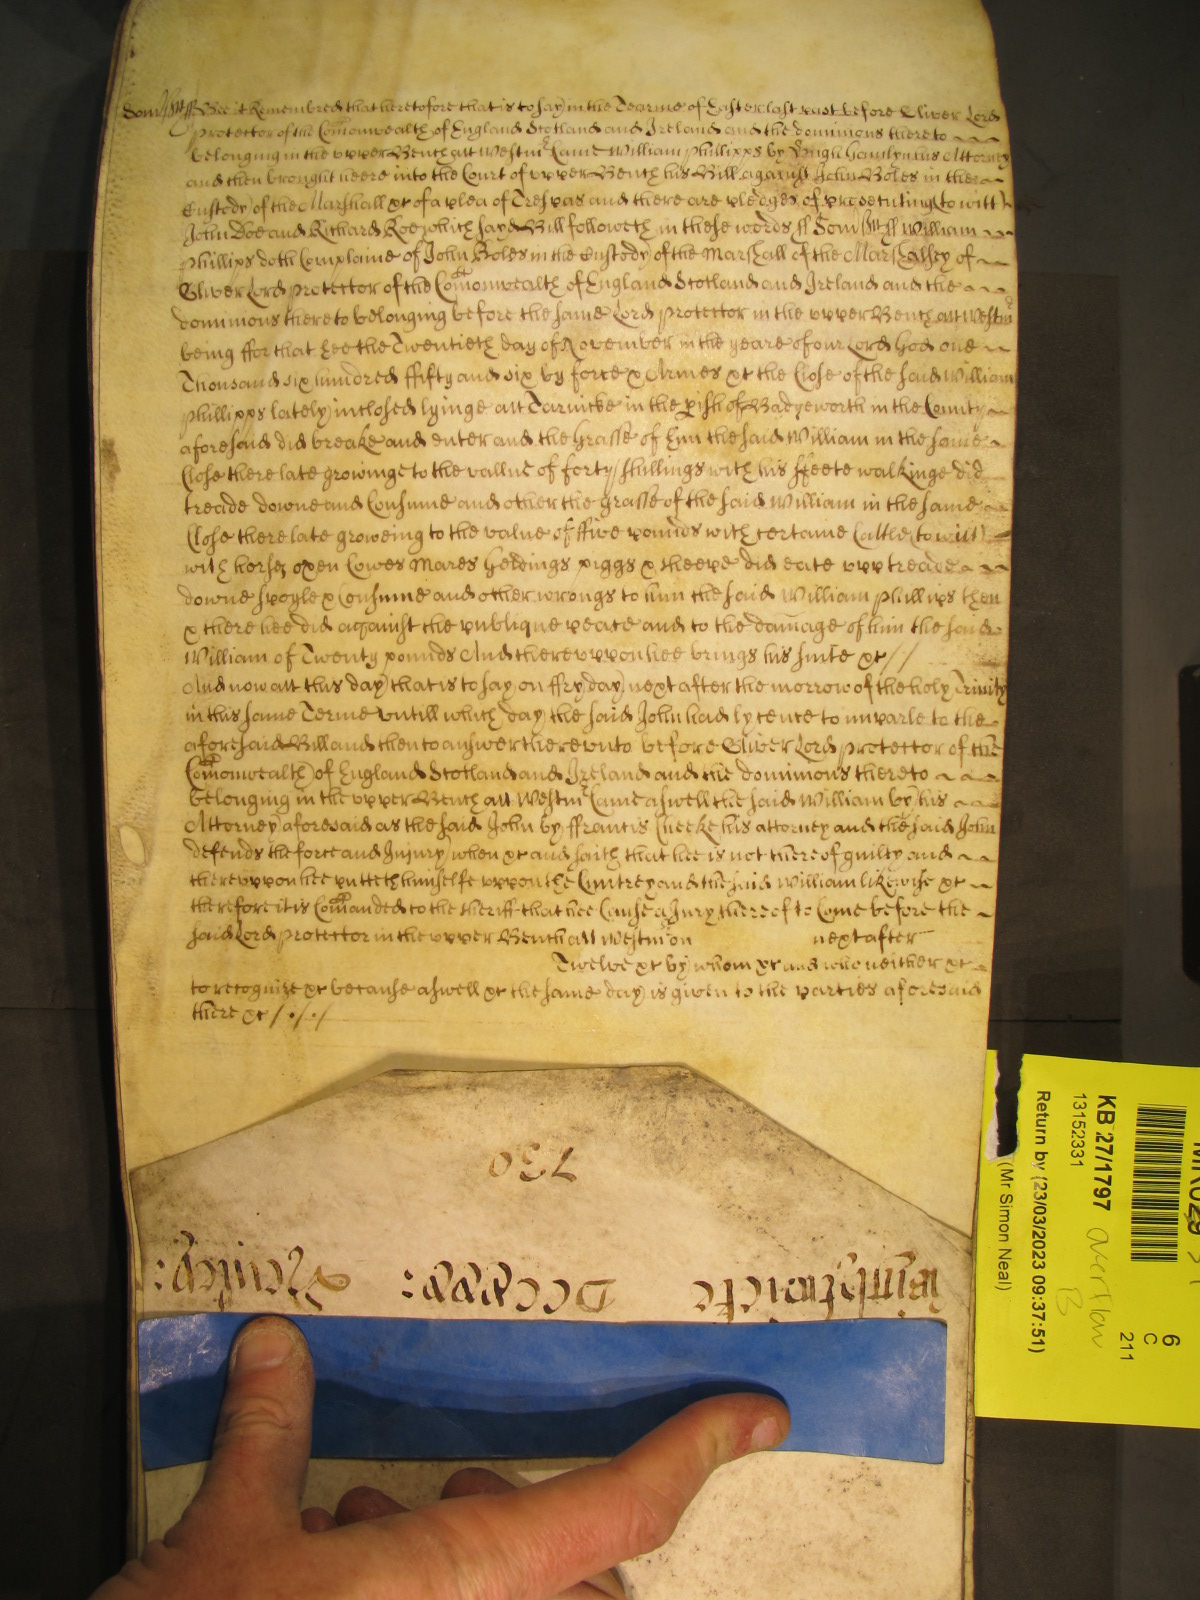 Som'sett ss Bee it Remembred that heretofore that is to say in the Tearme of Easter last past before Oliver Lord
Protector of the Comonwealth of England Scotland and Ireland and the dominions there to
belonging in the upper Bench att Westm' Came William Phillipps by Hugh his Attorney
and then brought heere into the Court of upper Bench his Bill against John Boles in the
Custody of the Marshall &c of a plea of Trespas and there are pledges of prosecuting to witt
John Doe and Richard Roe which sayd Bill followeth in these words ss Som'sett ss William
Phillips doth Complaine of John Boles in the Custody of the Marshall of the Marshalsey of
Oliver Lord Protector of the Comonwealth of England Scotland and Ireland and the
dominions there to belonging before the same Lord Protector in the upper Bench att Westm'
being ffor that hee the Twentieth day of November in the yeare of our Lord God one
Thousand six hundred ffifty and six by force & Armes &c the Close of the said William
Phillipps lately inclosed lyinge att Tarnicke in the p'ish of Badgeworth in the County
aforesaid did breake and enter and the Grasse of him the said William in the same
Close there late growinge to the vallue of forty shillings with his ffeete walkinge did
treade downe and Consume and other the grasse of the said William in the same
Close there late groweing to the value of ffive pounds with certaine Cattle (to witt)
with horses oxen Cowes Mares Geldings piggs & sheepe did eate upp treade
downe spoyle & Consume and other wrongs to him the said William Phillips then
& there hee did against the publique peace and to the damage of him the said
William of Twenty pounds And thereuppon hee brings his suite &c //
And now att this day that is to say on ffryday next after the morrow of the holy Trinity
in this same Terme untill which day the said John had lycence to imparle to the
aforesaid Bill and then to answer thereunto before Oliver Lord Protector of the
Comonwealth of England Scotland and Ireland and the dominions thereto
belonging in the upper Bench att Westm' Came aswell the said William by his
Attorney aforesaid as the said John by ffrancis Cheeke his attorney and the said John
defends the force and Injury when &c and saith that hee is not thereof guilty and
thereuppon hee putteth himselfe uppon the Cuntrey and the said William likewise &c
therefore it is Comanded to the sheriff that hee Cause a Jury thereof to Come before the
said Lord Protector in the upper Bench att Westm' on next after
Twelve &c by whom &c and who neither &c
to recognize &c because aswell &c the same day is given to the parties aforesaid
there &c /./.
730
Trinity:
Wintfhwicke
KB 27/1797
13152331
Return by (23/03/2023 09:37:51)
(Mr Simon Neal)
overflow
B
6
C
211